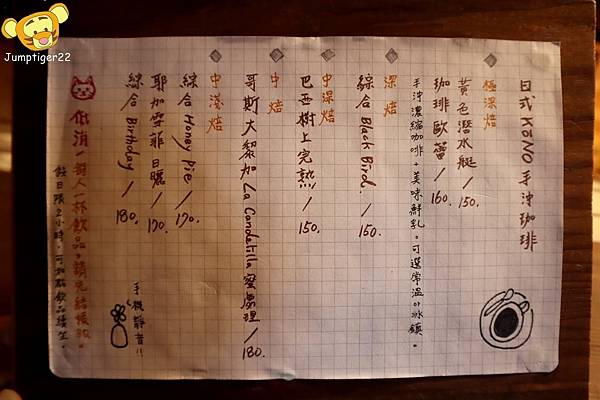 Jumptiger22
日式KONO手沖珈琲
極深焙
黃色潛水艇 / 150.
珈琲歐蕾 / 160.
手沖濃縮咖啡+美味鮮乳。可選常溫or冰鎮。
深焙
綜合 Black Bird. / 150.
中深焙
巴西樹上完熟 / 150.
中焙
哥斯大黎加 La Candelilla 蜜處理 / 180.
中淺焙
綜合 Honey Pie / 170.
耶加雪菲日曬 / 170.
綜合 Birthday / 180.
低消一個人一杯飲品。請先結後飲。
假日限2小時,可加點飲品續坐。
手機靜音!!